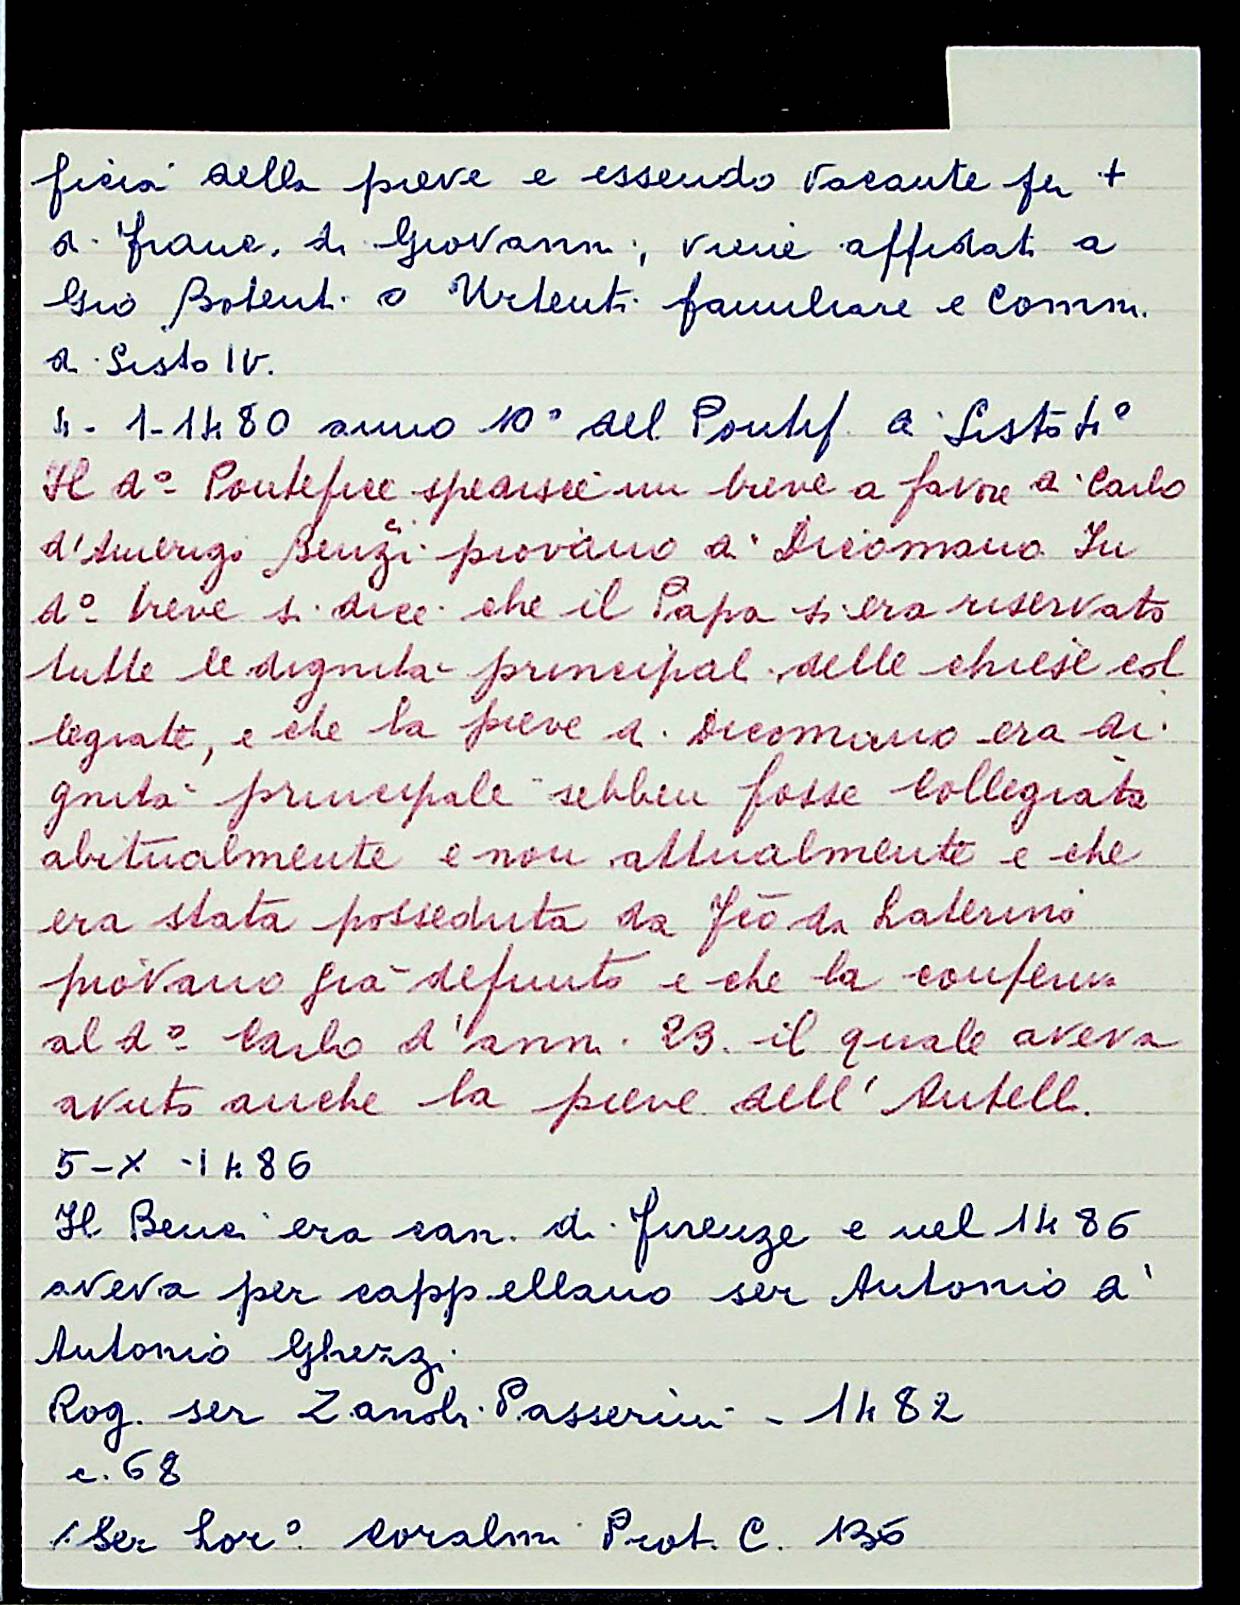 ficià della pieve e essendo vacante fu +
di Franc. di Giovanni, viene affidati a
Giò Botenti o Urtenti familiare e Comm.
di Sisto IV.
4-1-1480 anno 10° del Pontif. di Sisto 4°
Il d° Pontefice spedisce un breve a favore di Carlo
d'Amerigo Benzi ci piovano di Dicomano In
d° breve si dice che il Papa si era riservato
tutte le dignità principali delle chiese col
legiate, e che la pieve di Dicomano era di
gnità principale sebben fosse Collegiata
abitualmente e non attualmente e che
era stata posseduta da Jcō da Laterino
piovano già defunto e che la conferiva
al d° Carlo d'anni 23. il quale aveva
avuto anche la pieve dell'Antella.
5-X-1486
Il Benci era can. di Firenze e nel 1486
aveva per cappellano ser Antonio di
Antonio Ghezzi
Rog. ser Zanobi Passerini - 1482
c. 68
Ser Lor° Coralmi Prot. C. 136